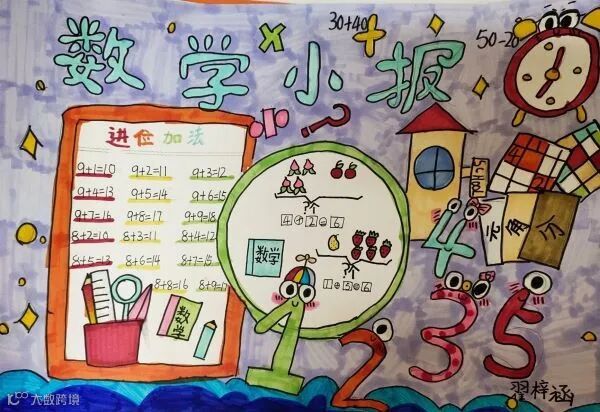 数学小报
30+40
50-20
进位加法
9+1=10 9+2=11 9+3=12
9+4=13 9+5=14 9+6=15
9+7=16 9+8=17 9+9=18
8+2=10 8+3=11 8+4=12
8+5=13 8+6=14 8+7=15
8+8=16 8+9=17
数学
4+2=6
数学
1+5=6
School
元角分
1
2
3
4
5
翟梓涵
大数跨境